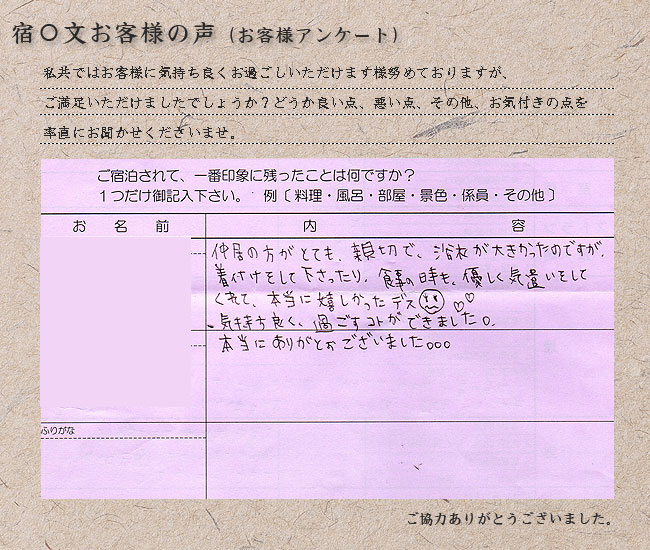 宿〇文お客様の声（お客様アンケート）
私共ではお客様に気持ち良くお過ごしいただけます様努めておりますが、
ご満足いただけましたでしょうか？どうか良い点、悪い点、その他、お気付きの点を
率直にお聞かせくださいませ。
ご宿泊されて、一番印象に残ったことは何ですか？
１つだけ御記入下さい。 例〔料理・風呂・部屋・景色・係員・その他〕
お名前 内容
仲居の方がとても、親切で、浴衣が大きかったのですが、
着付けをして下さったり、食事の時も、優しく気遣いをして
くれて、本当に嬉しかったデス
気持ち良く、過ごすコトができました。
本当にありがとおございました。。。
ふりがな
ご協力ありがとうございました。